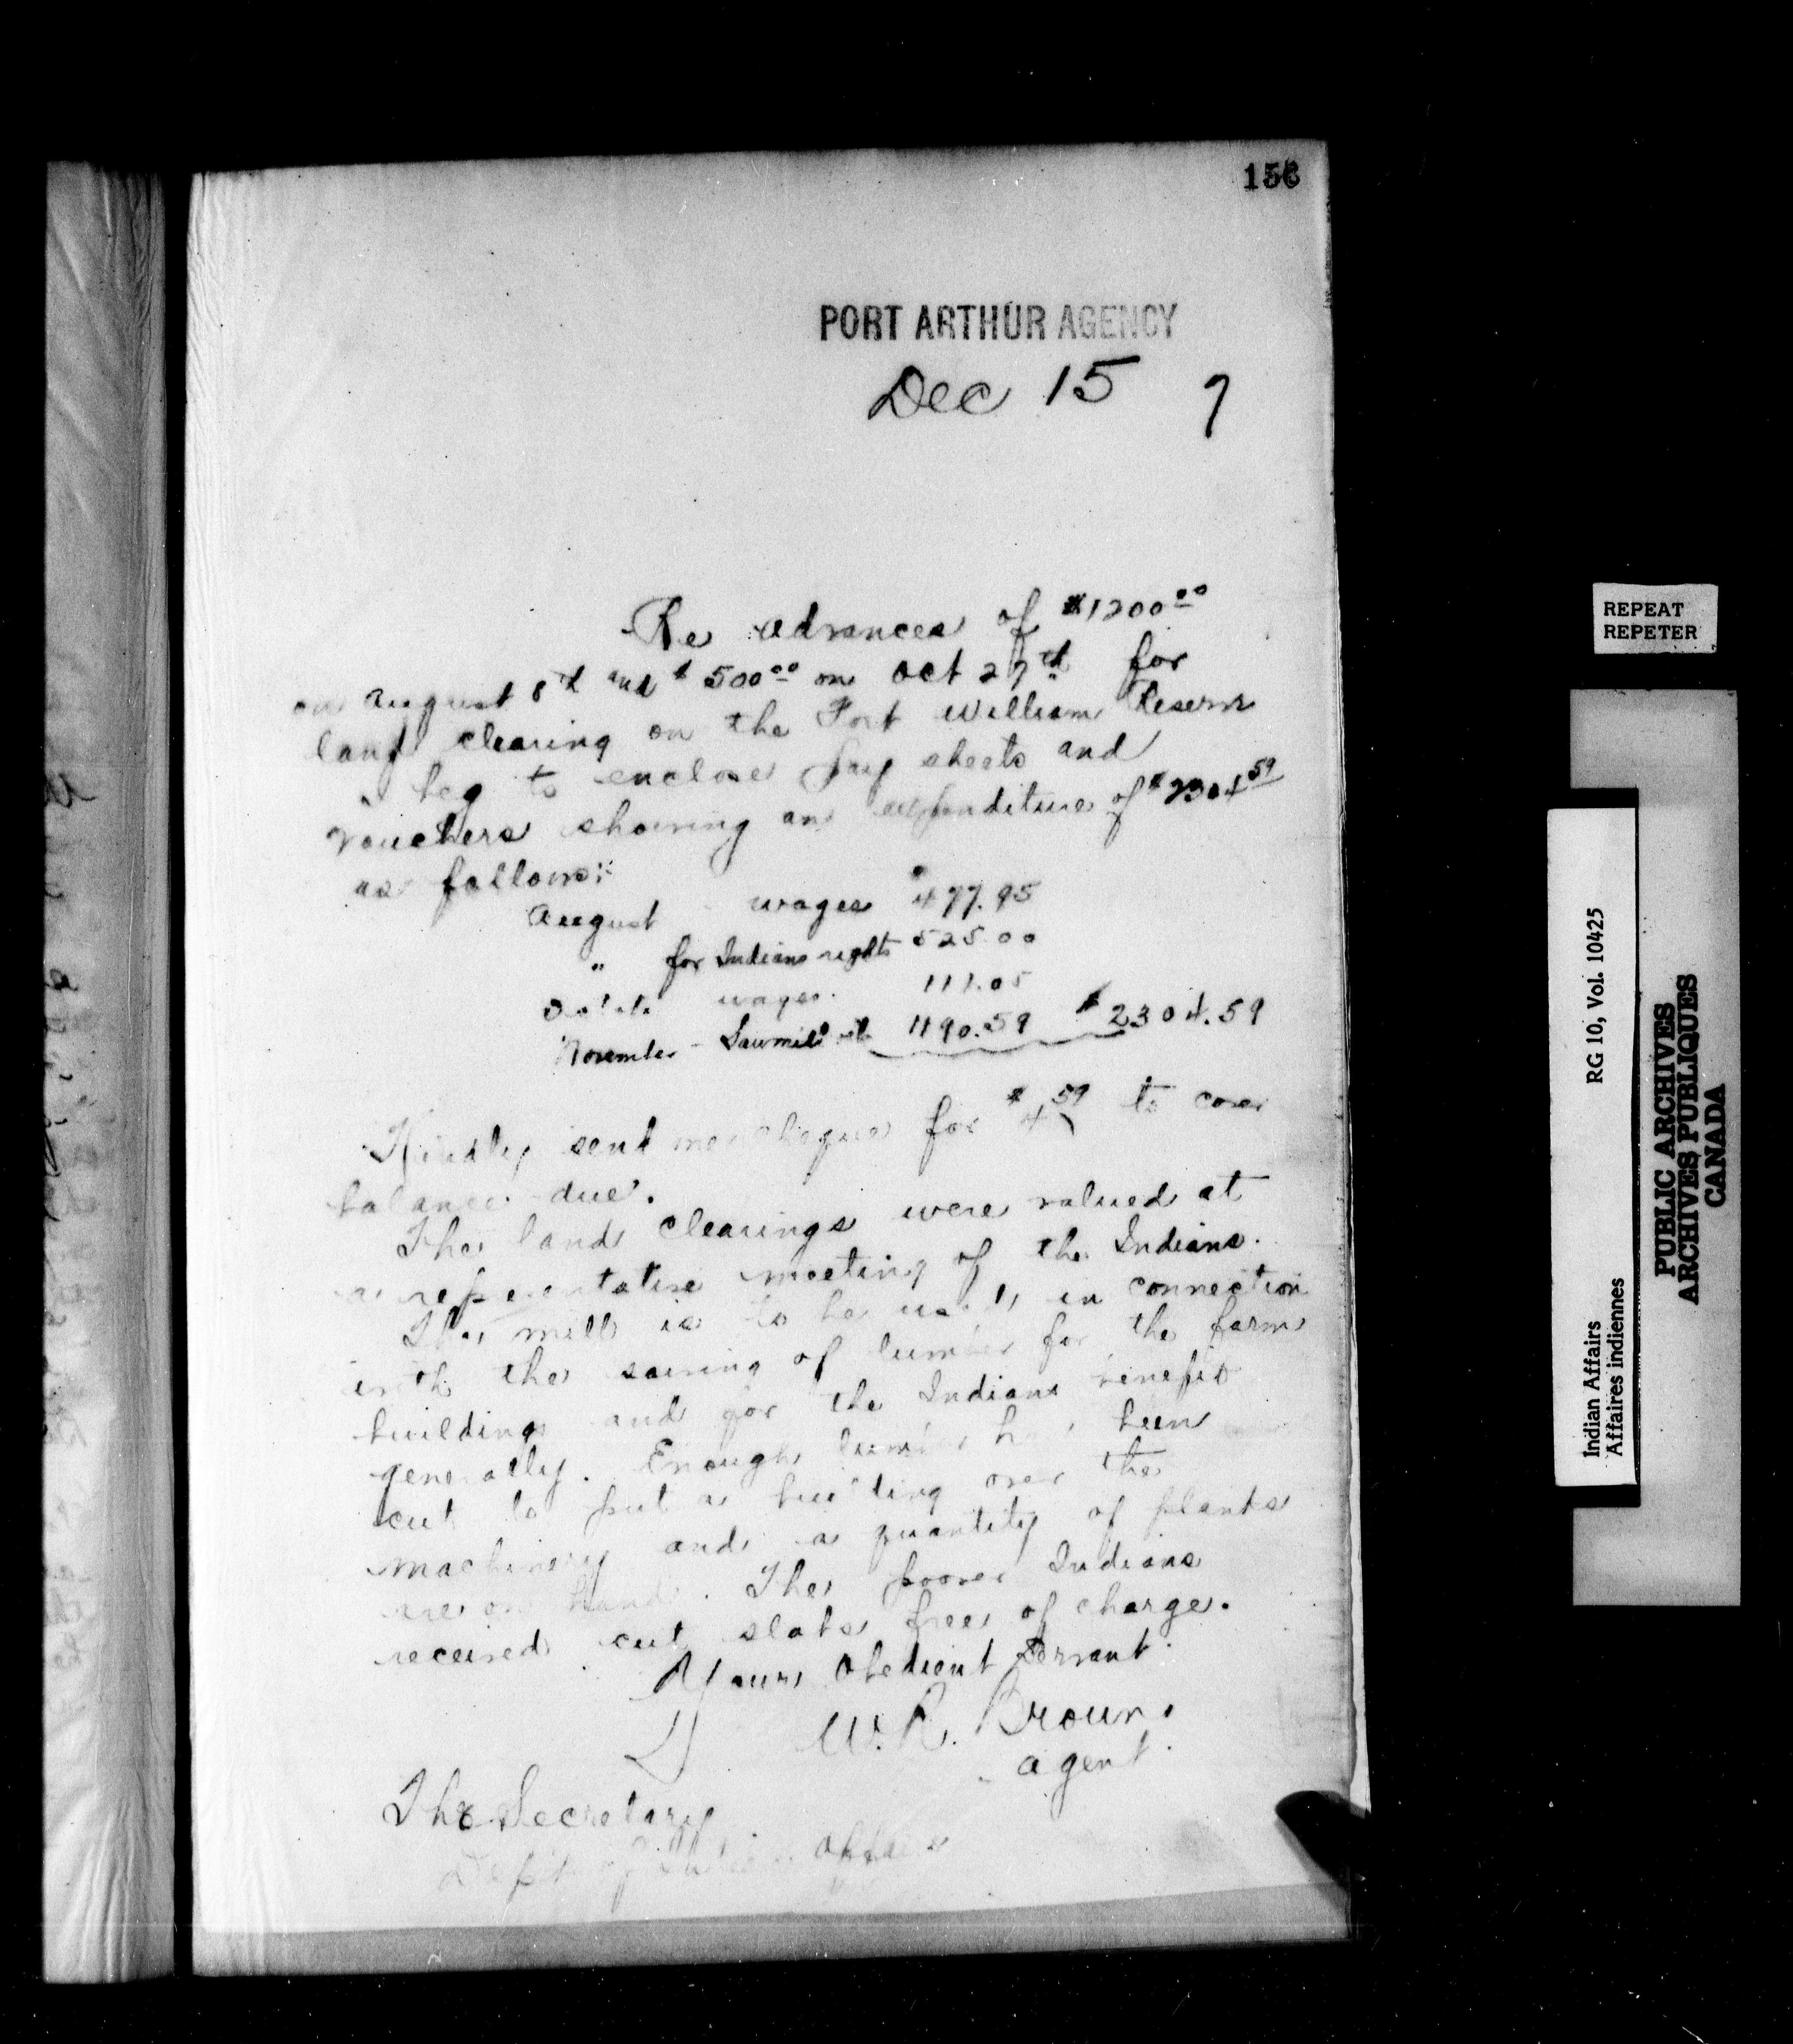 156
PORT ARTHUR AGENCY
Dec 15 7
Re advances of $1200.00
on August 8th and $500.00 on Oct 27th for
land clearing on the Fort William Reserve
beg to enclose pay sheets and
vouchers showing an expenditure of $2304.59
as follows:
August wages $477.95
" for Indians rights 525.00
wages. 111.05
November - Sawmill 1190.59 $2304.59
Kindly send me cheque for $4.59 to cover
balance due.
The land clearings were valued at
a representative meeting of the Indians.
The mill is to be used in connection
with the sawing of lumber for the farm
buildings and for the Indians benefit
generally. Enough lumber has been
cut to put a building over the
machinery and a quantity of planks
are on hand. The poorer Indians
received cut slabs free of charge.
Your Obedient Servant.
W. R. Brown
agent.
The Secretary
Dept of Indian Affairs
REPEAT
REPETER
RG 10, Vol. 10425
Indian Affairs
Affaires indiennes
PUBLIC ARCHIVES
ARCHIVES PUBLIQUES
CANADA